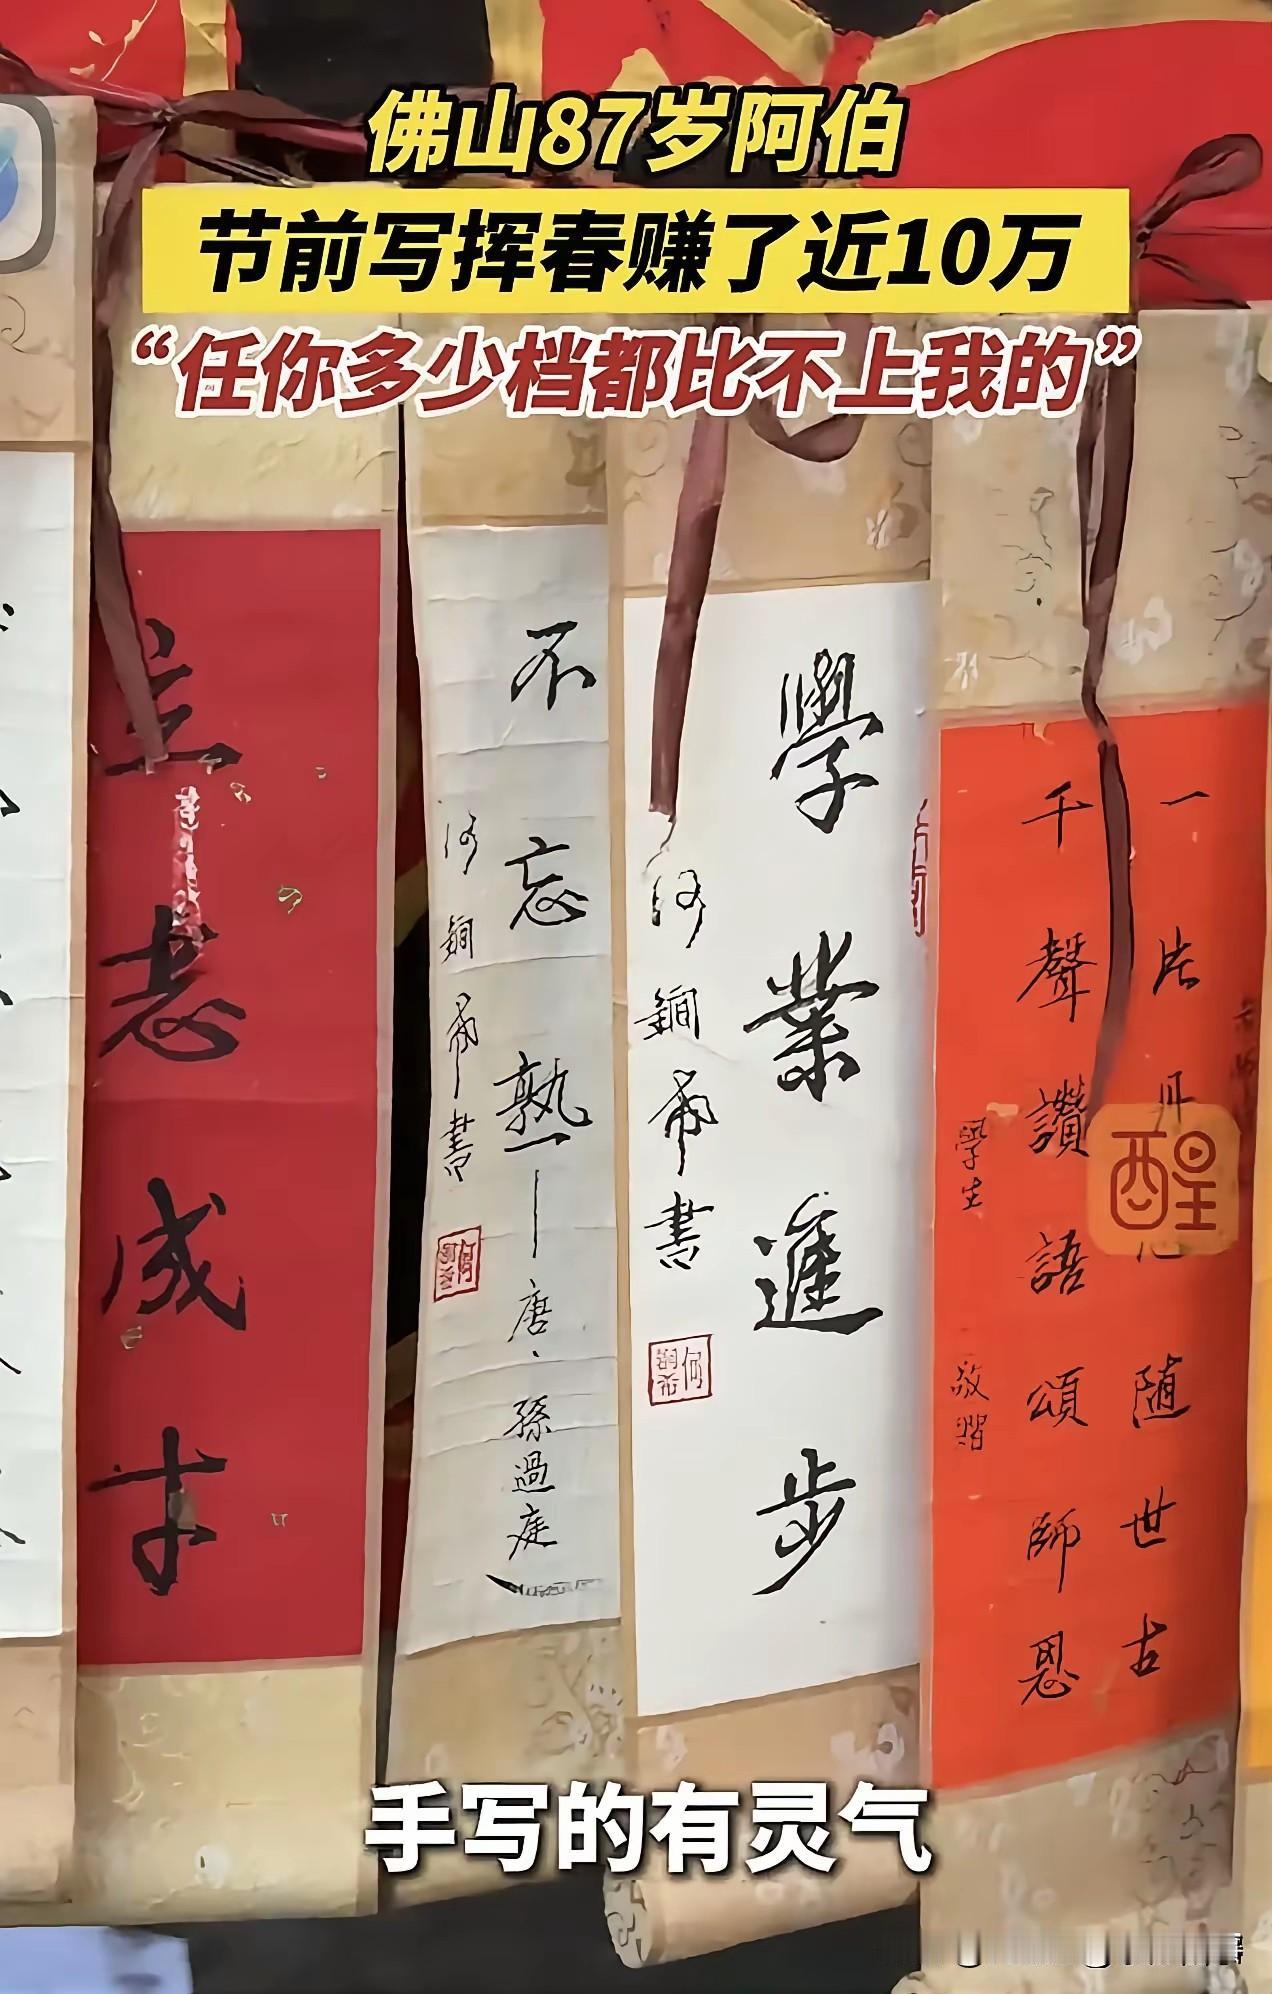 佛山87岁阿伯
节前写挥春赚了近10万
“任你多少档都比不上我的”
一片丹心随世古
千聲讚語頌師恩
學生
敬贈
學業進步
何鉰希書
不忘熟——唐、孫過庭
何鉰希書
立志成才
醒
手写的有灵气